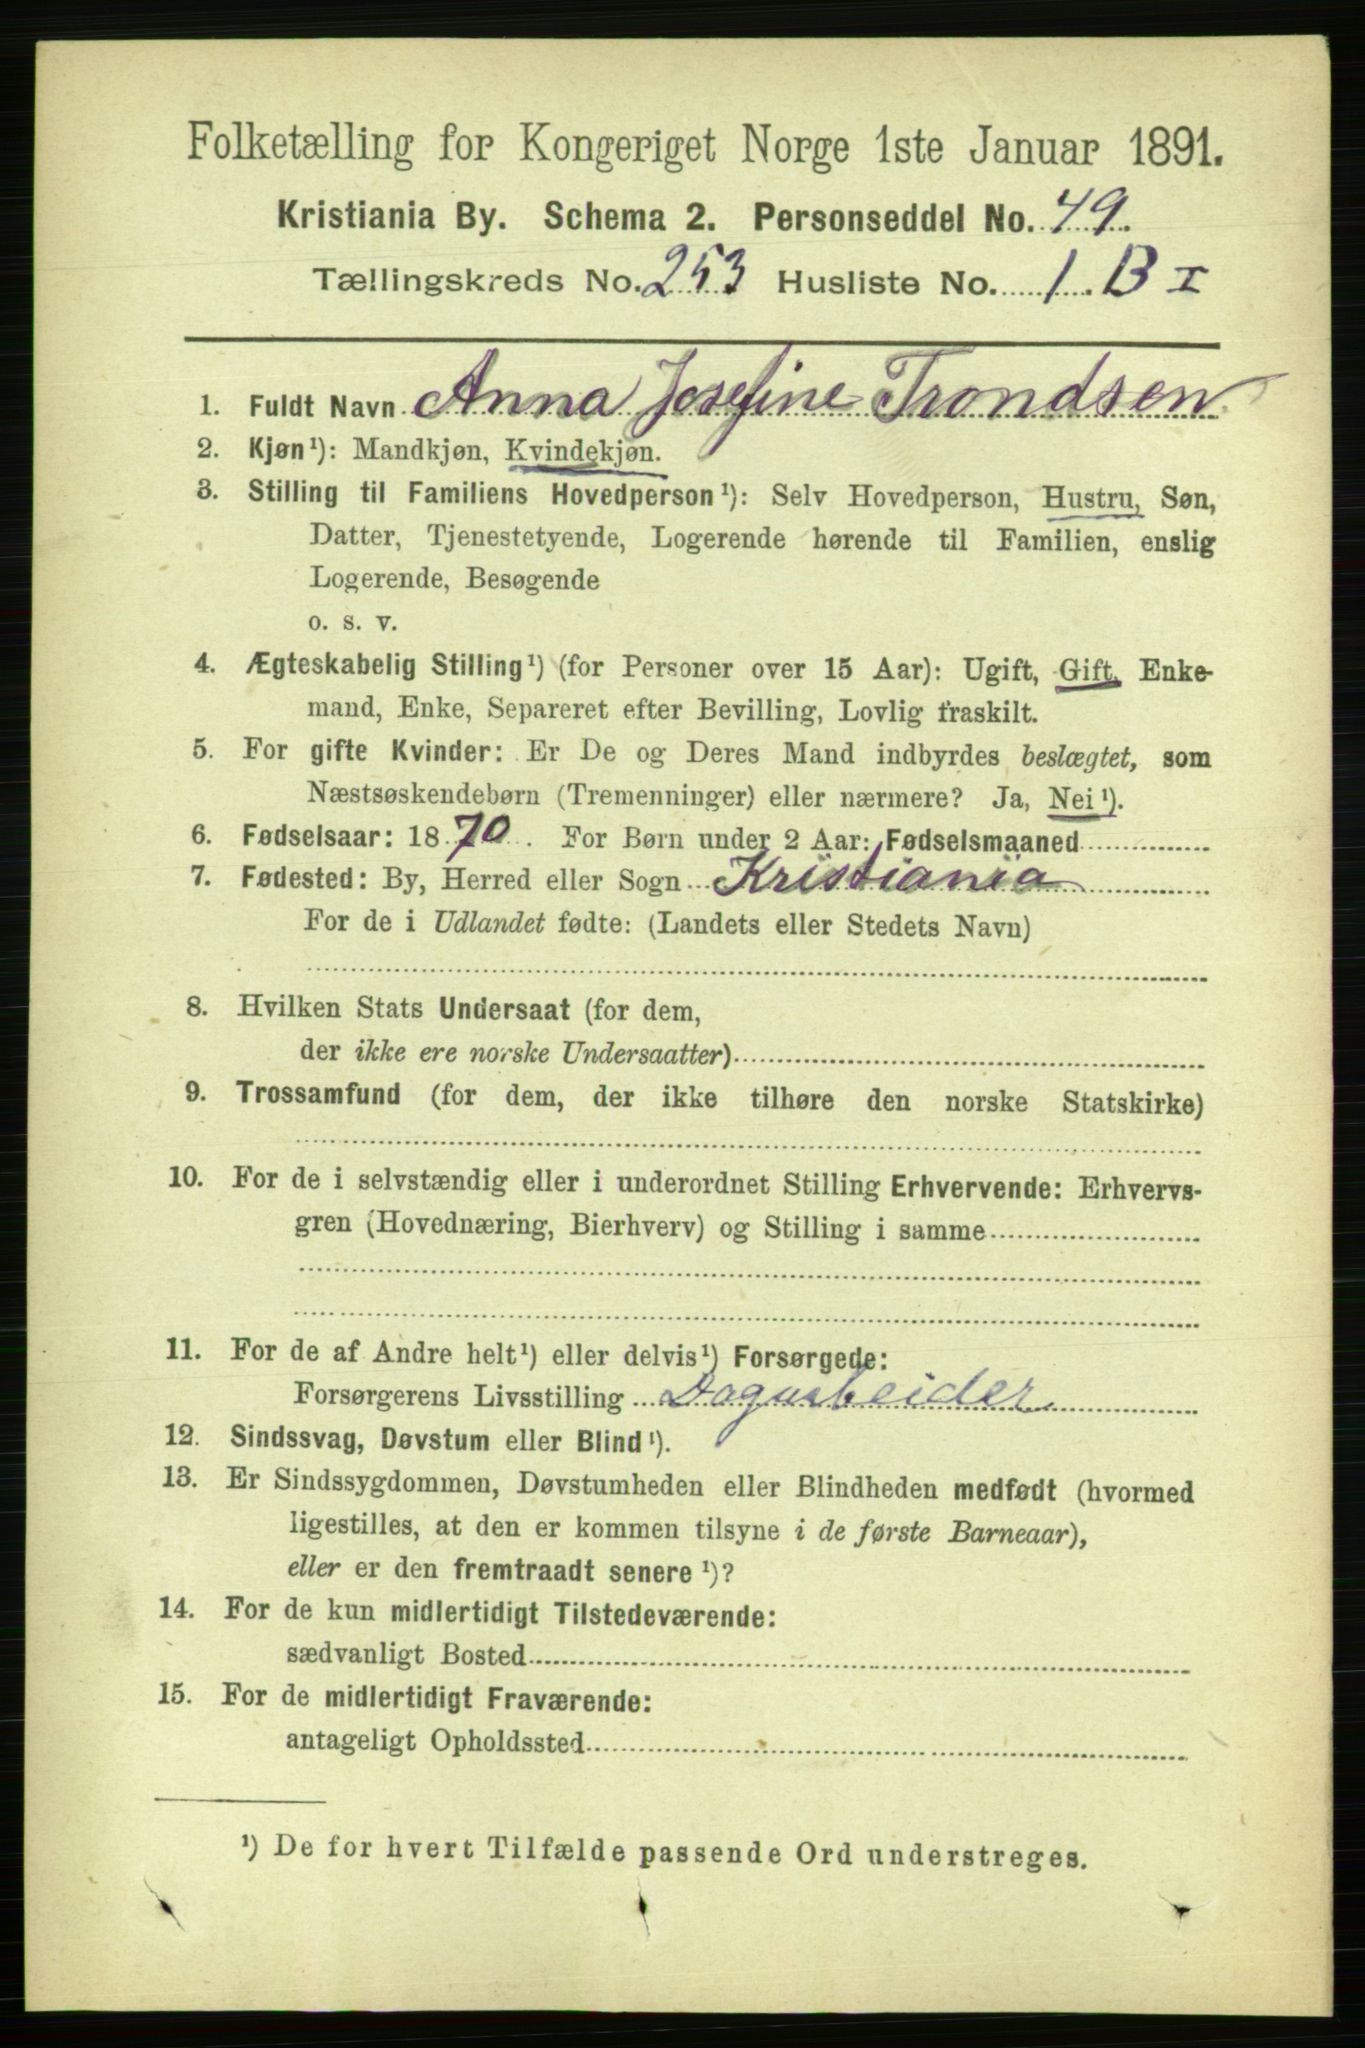 Folketælling for Kongeriget Norge 1ste Januar 1891.
Kristiania By. Schema 2. Personseddel No. 49.
Tællingskreds No. 253 Husliste No. 1. B I
1. Fuldt Navn Anna Josefine Trondsen
2. Kjøn¹): Mandkjøn, Kvindekjøn.
3. Stilling til Familiens Hovedperson¹): Selv Hovedperson, Hustru, Søn,
Datter, Tjenestetyende, Logerende hørende til Familien, enslig
Logerende, Besøgende
o. s. v.
4. Ægteskabelig Stilling¹) (for Personer over 15 Aar): Ugift, Gift, Enke-
mand, Enke, Separeret efter Bevilling, Lovlig fraskilt.
5. For gifte Kvinder: Er De og Deres Mand indbyrdes beslægtet, som
Næstsøskendebørn (Tremenninger) eller nærmere? Ja, Nei¹).
6. Fødselsaar: 1870. For Børn under 2 Aar: Fødselsmaaned
7. Fødested: By, Herred eller Sogn Kristiania
For de i Udlandet fødte: (Landets eller Stedets Navn)
8. Hvilken Stats Undersaat (for dem,
der ikke ere norske Undersaatter)
9. Trossamfund (for dem, der ikke tilhøre den norske Statskirke)
10. For de i selvstændig eller i underordnet Stilling Erhvervende: Erhvervs-
gren (Hovednæring, Bierhverv) og Stilling i samme
11. For de af Andre helt¹) eller delvis¹) Forsørgede:
Forsørgerens Livsstilling Dagarbeider
12. Sindssvag, Døvstum eller Blind¹).
13. Er Sindssygdommen, Døvstumheden eller Blindheden medfødt (hvormed
ligestilles, at den er kommen tilsyne i de første Barneaar),
eller er den fremtraadt senere¹)?
14. For de kun midlertidigt Tilstedeværende:
sædvanligt Bosted
15. For de midlertidigt Fraværende:
antageligt Opholdssted
¹) De for hvert Tilfælde passende Ord understreges.